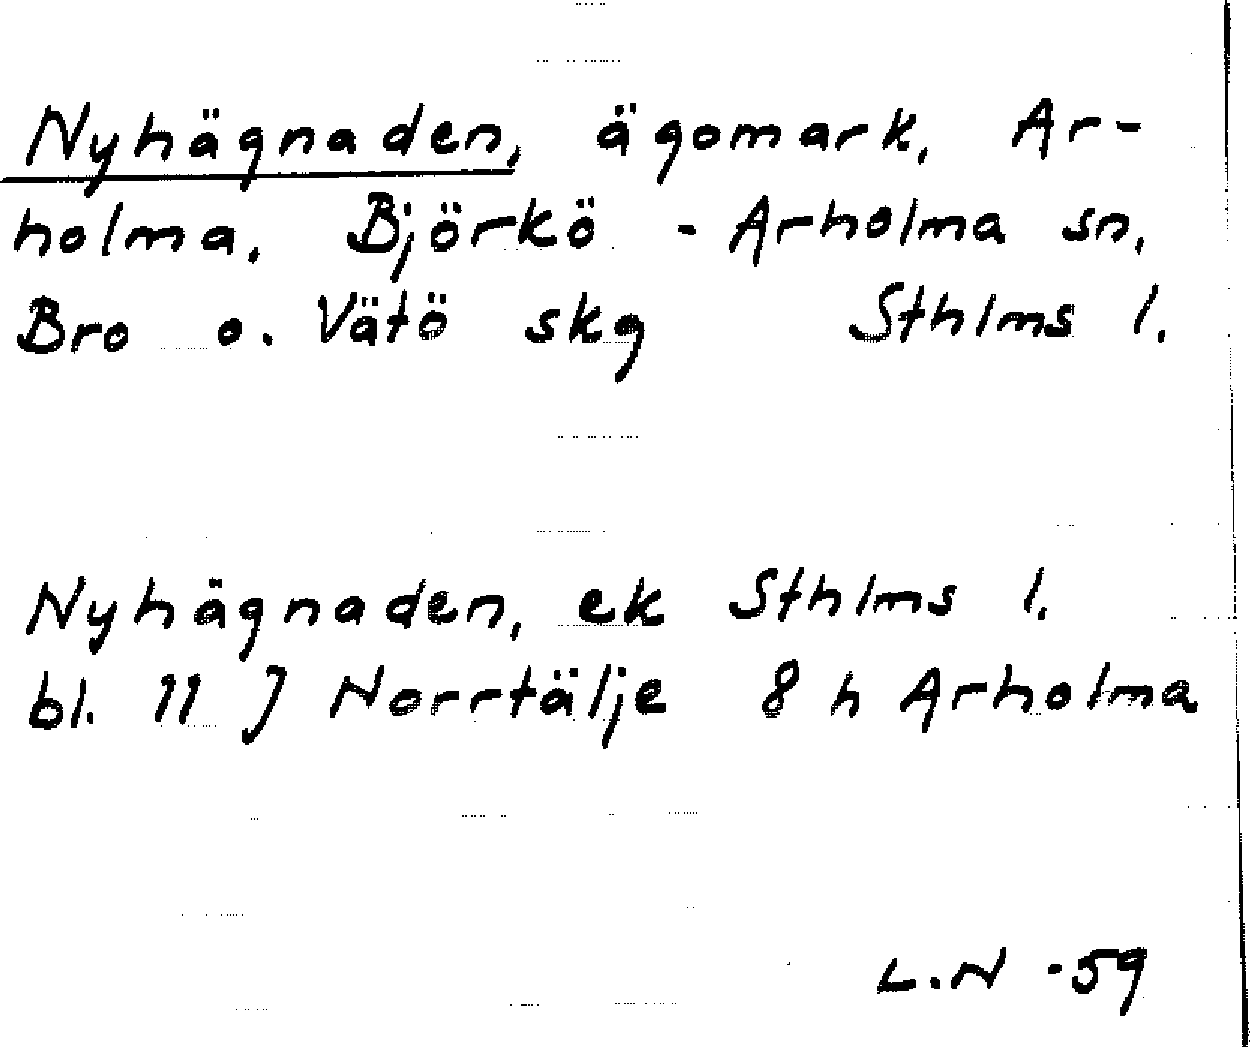 Nyhägnaden, ägomark, Ar-
holma, Björkö - Arholma sn,
Bro o. Vätö skg Sthlms l.
Nyhägnaden, ek Sthlms l.
bl. 11 J Norrtälje 8 h Arholma
L.N -59